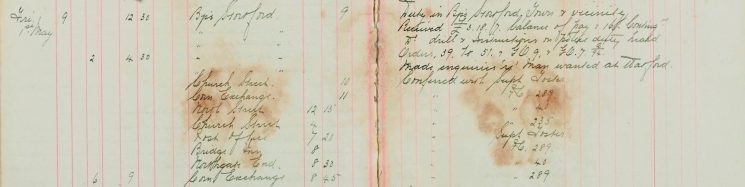 Fri 9 12 30 Bp's Stortford. 9
1st May " "
" "
2 4 30 "
" "
Church Street. 10
Corn Exchange. 11
North Street 12 15
Church Street 4
Post Office 7 20
Bridge Inn 8
Northgate End. 8 30
6 9 Corn Exchange 8 45
Duty in Bp's Stortford, Town & vicinity.
Received £3.18.7. balance of Pay &
drill & Instructions on Police duty, read
Orders, 39. to 51. & G.O. 9. & G.O. 7
Made enquiries re man wanted at
Conferred with Supt Foster
" P.C. 289
" " 40
" " 235
" Supt Foster
" P.C. 289
" " 40
" " 289